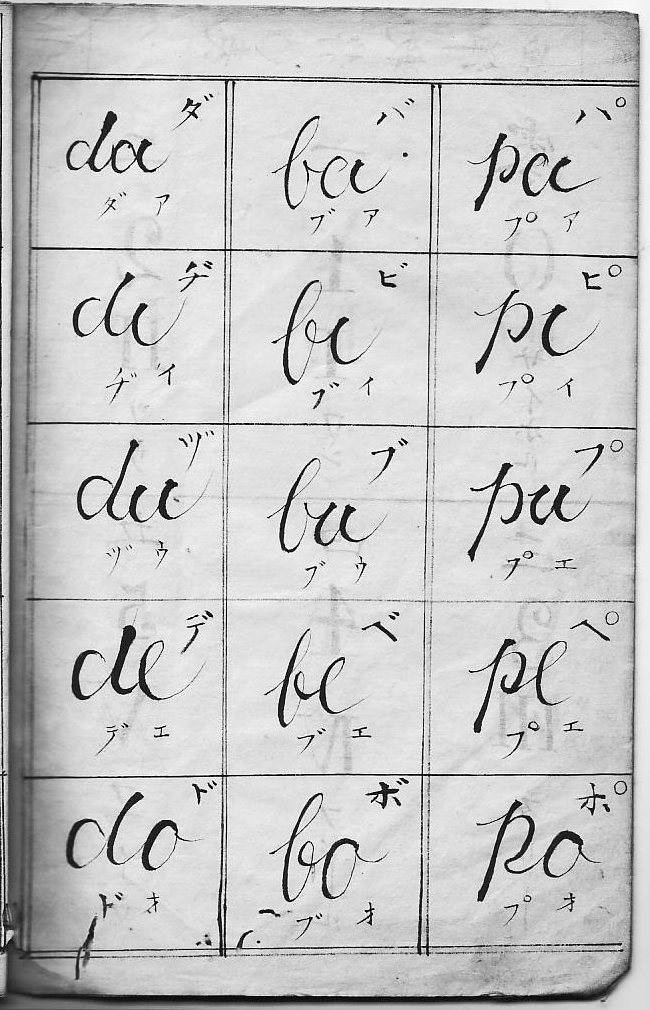 ダ バ パ
da ba pa
ダ ア ブ ア プ ア
ヂ ビ ピ
di bi pi
ヂ イ ブ イ プ イ
ヅ ブ プ
du bu pu
ヅ ウ ブ ウ プ エ
デ ベ ペ
de be pe
デ エ ブ エ プ エ
ド ボ ポ
do bo po
ド オ ブ オ プ オ